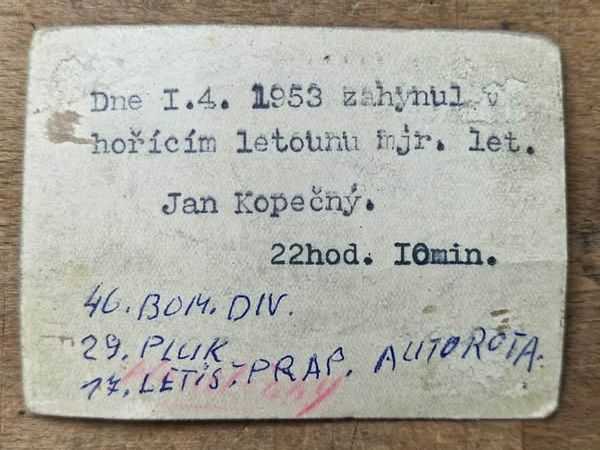 Dne I.4. 1953 zahynul v
hořícím letounu mjr. let.
Jan Kopečný.
22hod. I0min.
46. BOM. DIV.
29. PLUK
17. LETIŠT. PRAP. AUTOROTA.